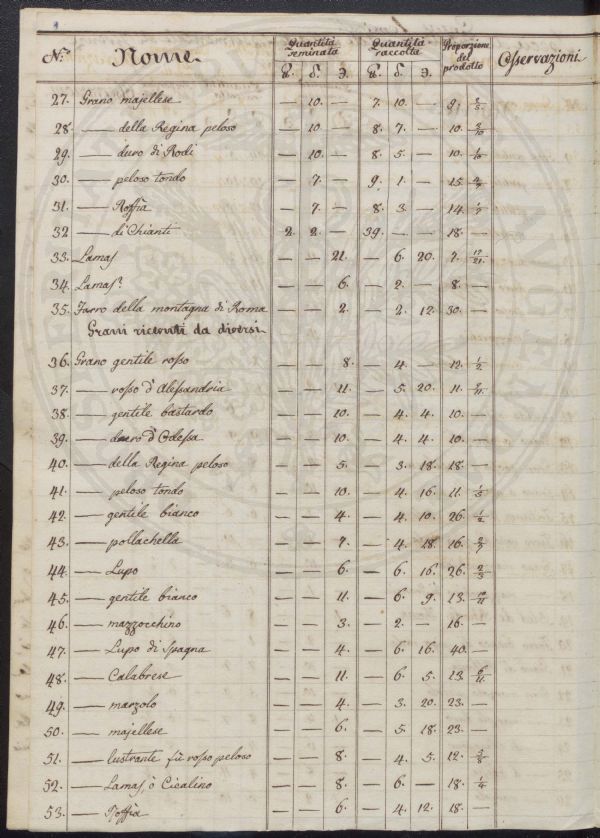 N.º Nome Quantità seminata Quantità raccolta Proporzione del prodotto Osservazioni
27. Grano majellese — 10. — 7. 10. — 9. 2/5
28. — della Regina peloso — 10 — 8. 7. — 10. 3/10
29. — duro di Rodi — 10. — 8. 5 — 10. 1/10
30. — peloso tondo — 7. — 9. 1 — 15 3/7
31. — Roffia — 7. — 8. 3 — 14. 1/7
32 — di Chianti 2. 2. — 39. — — 18. —
33. Lamaſ — — 21. — 6. 20. 7. 19/21
34. Lamaſ? — — 6. — 2. — 8. —
35. Farro della montagna di Roma — — 2. — 2. 12 30. —
Grani ricevuti da diversi
36. Grano gentile roſso — — 8. — 4. — 12. 1/2
37. — roſso d'Aleſsandria — — 11. — 5. 20. 11.
38. — gentile bastardo — — 10. — 4. 4. 10. —
39. — duro d'Odeſsa — — 10. — 4. 4. 10. —
40. — della Regina peloso — — 5. — 3. 18. 18. —
41. — peloso tondo — — 10. — 4. 16. 11. 1/5
42. — gentile bianco — — 4. — 4. 10. 26. 1/2
43. — pollachella — — 7. — 4. 18. 16. 2/7
44. — Lupo — — 6. — 6. 16. 26. 2/3
45. — gentile bianco — — 11. — 6. 9. 13. 10/11
46. — mazzocchino — — 3. — 2. — 16. —
47. — Lupo di Spagna — — 4. — 6. 16. 40. —
48. — Calabrese — — 11. — 6. 5. 13. 6/11
49. — marzolo — — 4. — 3. 20. 23. —
50. — majellese — — 6. — 5. 18. 23. —
51. — lustrante fù roſso peloso — — 8. — 4. 5. 12. 5/8
52. — Lamaſ, ò Cicalino — — 8. — 6. — 18. 1/4
53. — Roffia — — 6. — 4. 12. 18. —